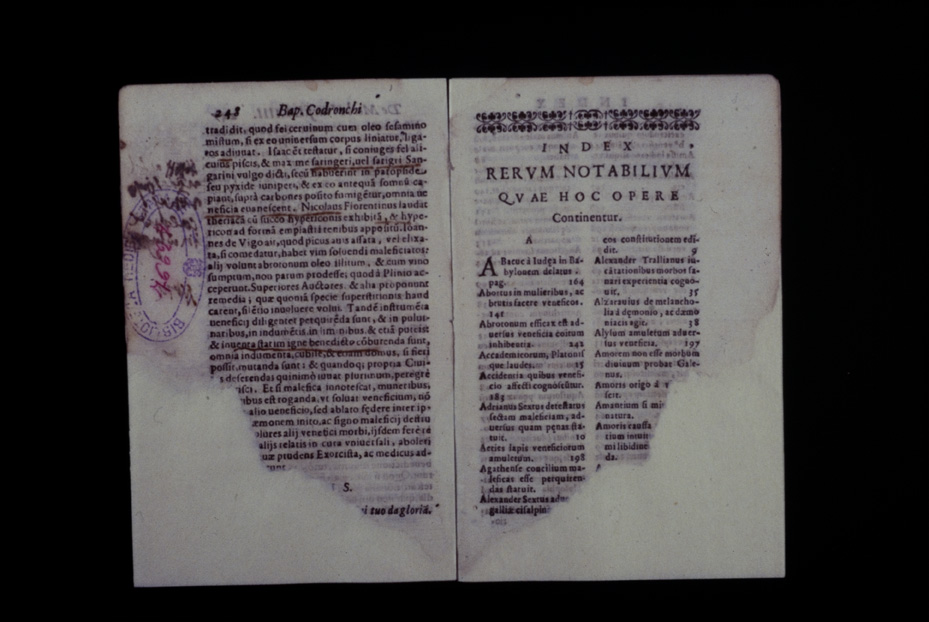 248 Bap. Codronchi
tradidit, quod sei ceruinum cum oleo sesamino
mistum, si ex eo uniuersum corpus liniatur, liga-
tos adiuuat. Isaac ēt testatur, si coniuges fel ali-
cuius piscis, & maxime
garini vulgo dicti, secū habuerint in
seu pyxide iuniperi, & ex eo antequā somnū ca-
piant, suprà carbones posito fomigētur, omnia ue
neficia euanescent. Nicolaus Florentinus laudat
theriacā cū succo hypericonis exhibitā, & hype-
ricon ad formā emplastri renibus appositū. Ioan-
nes de Vigo ait, quod picus auis assata, vel elixa-
ta, si comedatur, habet vim soluendi maleficiatos:
alij volunt abrotonum oleo illitum, & cum vino
sumptum, non parum prodesse; quod à Plinio ac-
ceperunt. Superiores Auctores & alia proponunt
remedia; quæ quoniā specie superstitionis haud
carent, si ētio inuoluere volui. Tandē instrumēta
ueneficij diligenter perquirēda sunt, & in puluì-
naribus, in indumētis in liminibus & etiā puteis:
& inuenta statim igne benedicto cōburenda sunt,
omnia indumenta, cubile, & etiam domus, si fieri
possit, mutanda sunt: & quandoq; propria Ciui-
deserendas quinimò iuuat plurimum, peregrè
Et si malefica innotescat, muneribus,
est roganda, vt soluat veneficium, nō
alio ueneficio, sed ablato fędere inter ip-
æmonem inito, ac signo maleficij destru
plures alij venefici morbi, ijsdem ferè re
alijs relatis in cura vniuersali, aboleri
prudens Exorcista, ac medicus ad-
unt
S.
tuo da gloriā.
INDEX
RERVM NOTABILIVM
QVAE HOC OPERE
Continentur.
A
ABacuc à Iudęa in Ba-
bylonem delatus.
pag. 164
Abortus in mulieribus, ac
brutis facere veneficos.
141
Abrotonum efficax est ad-
uersus veneficia coitum
inhibentia. 242
Academicorum, Platonis
que laudes. 15
Accidentia quibus venefi-
cio affecti cognoscūtur.
185
Adrianus Sextus detestatus
sectam maleficiam, ad-
uersus quam pęnas sta-
tuit. 10
Aetites lapis veneficiorum
amuletum. 198
Agathense concilium ma-
leficas esse perquiren-
das statuit.
Alexander Sextus adue
galliæ cisalpin
eos constitutionem edi-
dit. 9
Alexander Trallianus in-
cātationibus morbos sa-
nari experientia cogno-
uit. 35
Alzarauius de melancho-
lia à dęmonio, ac dæmo
niacis agit. 38
Alysum amuletum aduer-
sus veneficia. 197
Amorem non esse morbum
diuinum probat Gale-
nus.
Amoris origo à
scit.
Amantium si mi
natura.
Amoris caussa
tium intuit
mi libidine
da.
A